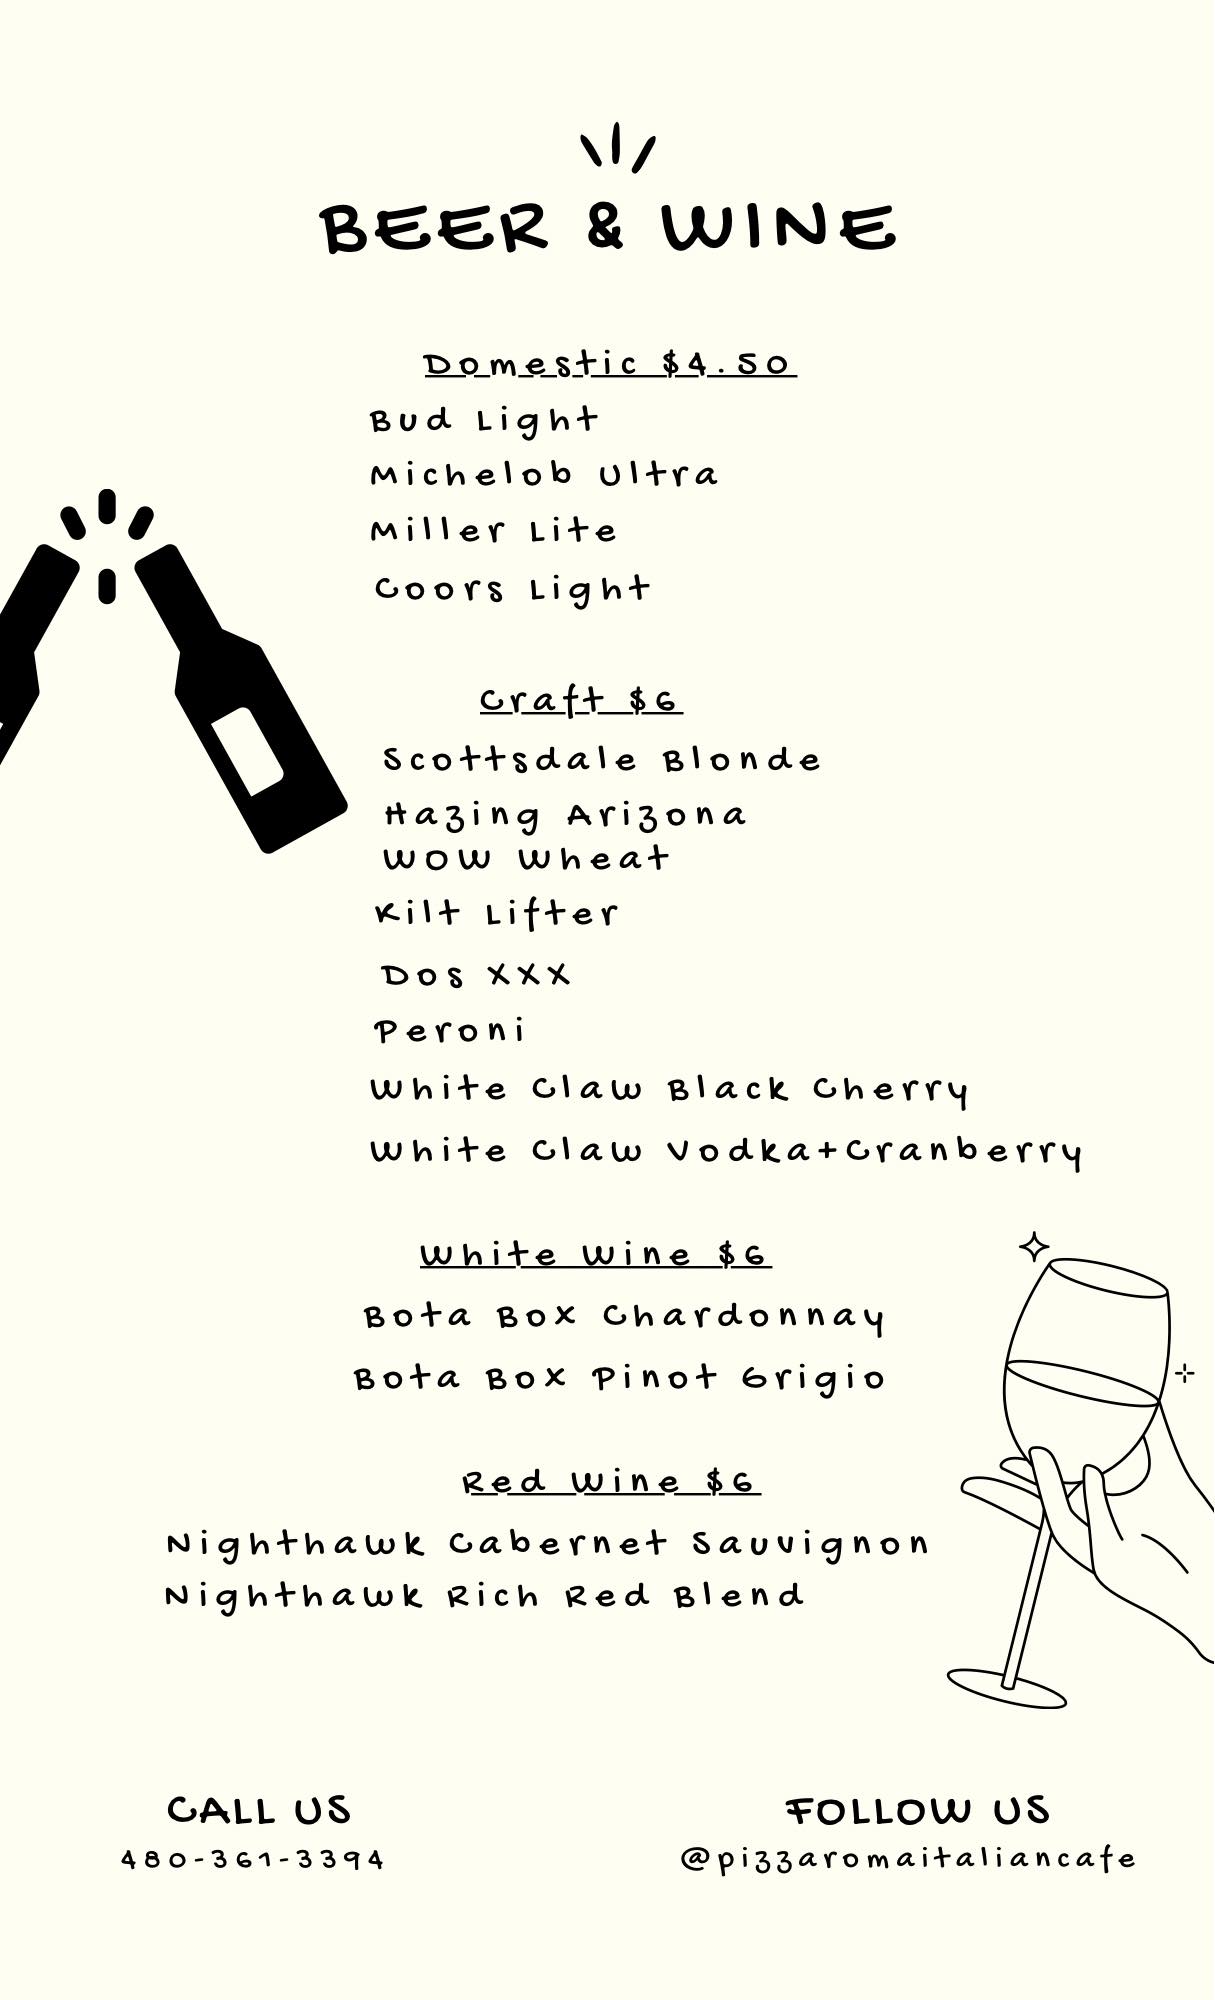 BEER & WINE
Domestic $4.50
Bud Light
Michelob Ultra
Miller Lite
Coors Light
Craft $6
Scottsdale Blonde
Hazing Arizona
WOW Wheat
Kilt Lifter
Dos XXX
Peroni
White Claw Black Cherry
White Claw Vodka+Cranberry
White Wine $6
Bota Box Chardonnay
Bota Box Pinot Grigio
Red Wine $6
Nighthawk Cabernet Sauvignon
Nighthawk Rich Red Blend
CALL US
480-361-3394
FOLLOW US
@pizzaromaitaliancafe